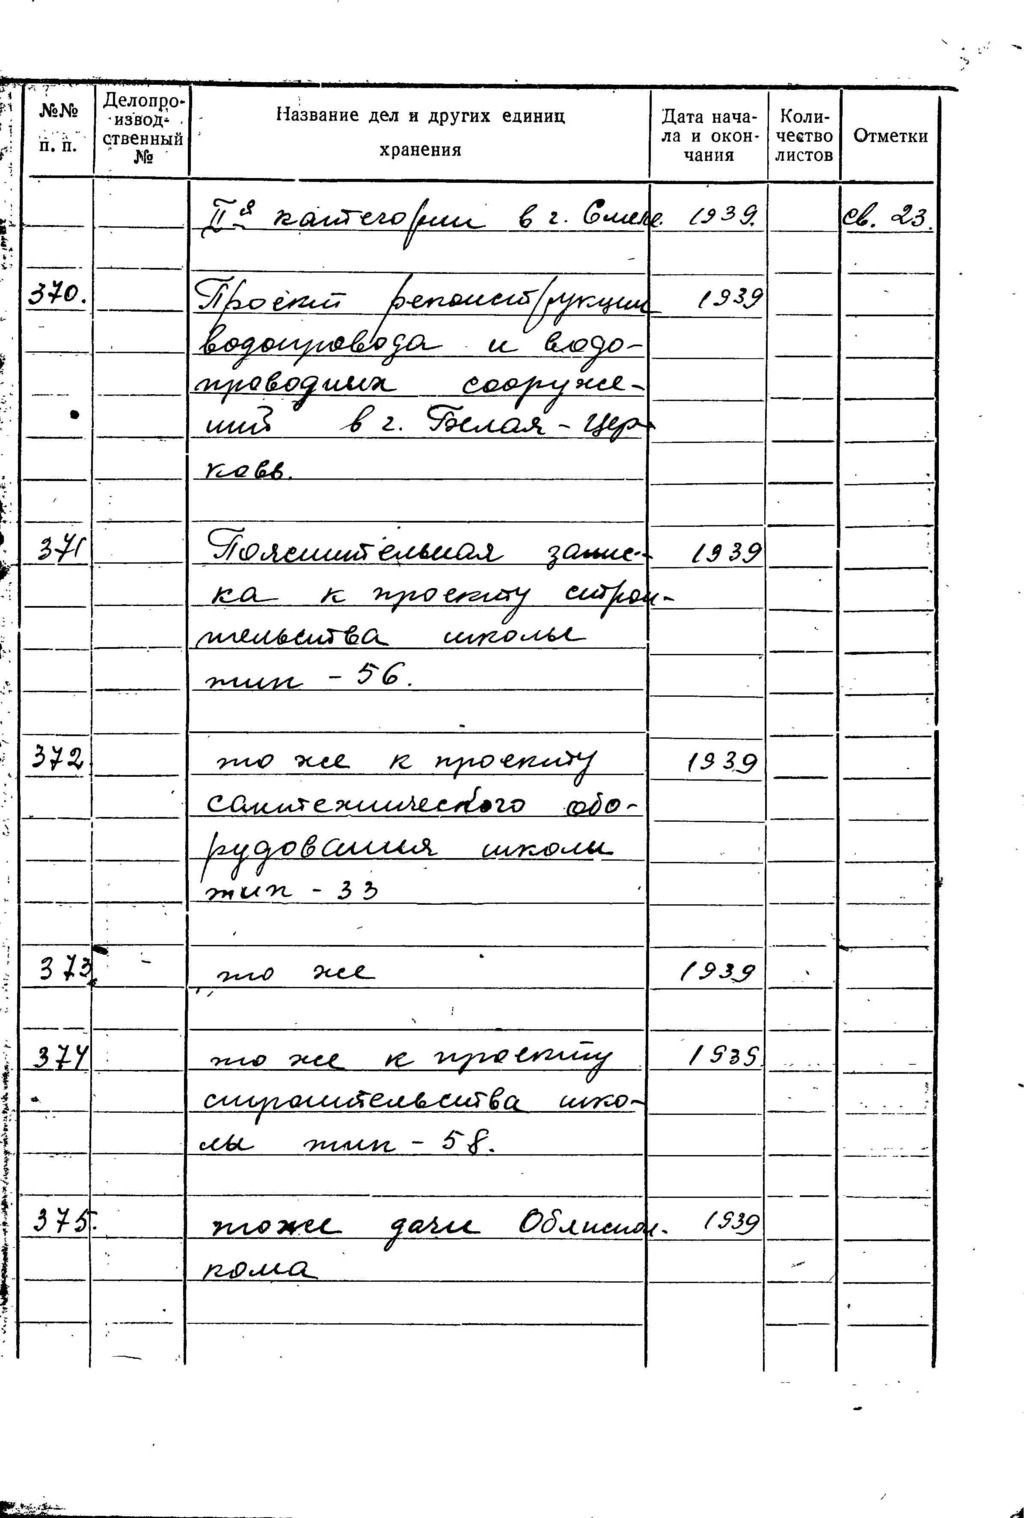 №№ п. п. Делопро-извод-ственный № Название дел и других единиц хранения Дата нача-ла и окон-чания Коли-чество листов Отметки
IIя категории в г. Смеле. 1939. св. 23.
370. Проект реконструкции 1939
водопровода и водо-
проводных сооруже-
ний в г. Белая-Цер-
ковь.
371 Пояснительная запис- 1939
ка к проекту строи-
тельства школы
тип - 56.
372 то же к проекту 1939
сантехнического обо-
рудования школы
тип - 33
373 то же 1939
374 то же к проекту 1939
строительства шко-
лы тип - 58.
375. тоже дачи Облиспол- 1939
кома